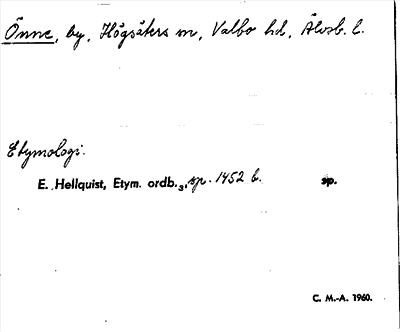 Önne, by, Högsäters sn, Valbo hd, Älvsb. l.
Etymologi:
E. Hellquist, Etym. ordb.3, sp. 1452 b. sp.
C. M.-A. 1960.